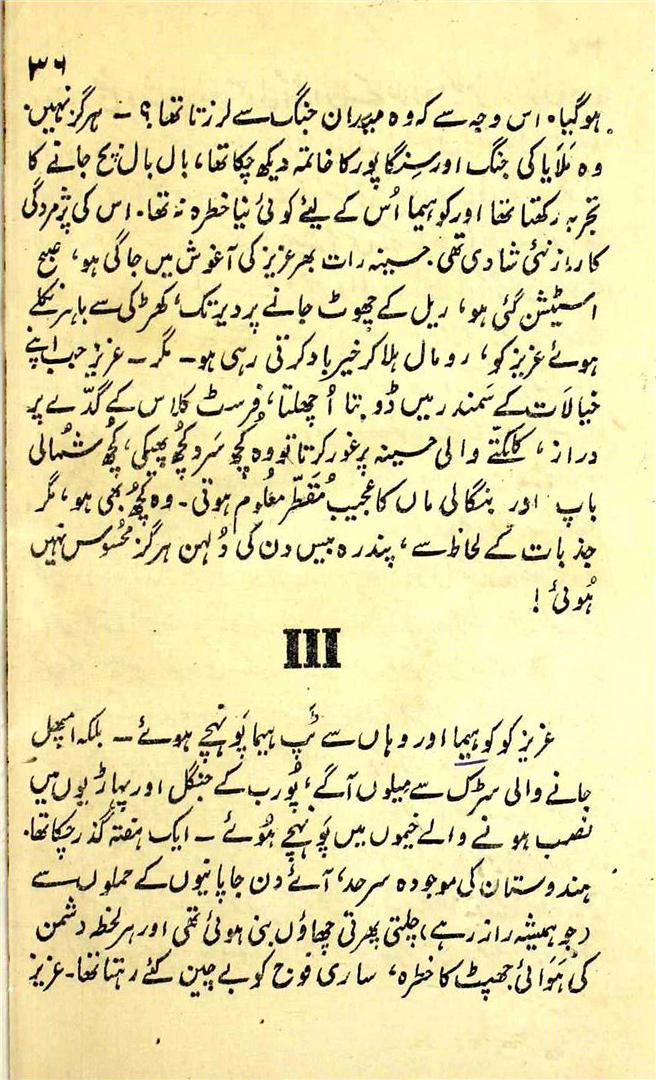 ۳۶
ہوگیا۔ اس وجہ سے کہ وہ میدان جنگ سے لرزتا تھا؟ ۔ ہرگز نہیں۔
وہ مَلَایا کی جنگ اور سِنگاپور کا خاتمہ دیکھ چکا تھا، بال بال بچ جانے کا
تجربہ رکھتا تھا اور کوہیما اُس کے لیئے کوئی نیا خطرہ نہ تھا۔ اس کی پژمردگی
کا راز نئی شادی تھی۔ حسینہ رات بھر عزیز کی آغوش میں جاگی ہو، صبح
اسٹیشن گئی ہو، ریل کے چھوٹ جانے پر دیر تک، کھڑکی سے باہر نکلے
ہوئے عزیز کو، رومال ہلا کر خیر باد کرتی رہی ہو۔ مگر ۔ عزیز جب اپنے
خیالات کے سَمندر میں ڈوبتا اُچھلتا، فرسٹ کلاس کے گدّے پر
دراز، کلکتّے والی حسینہ پر غور کرتا تو وہ کُچھ سَرد کُچھ پھیکی، کُچھ شُمالی
باپ اور بنگالی ماں کا عجیب مُقَطّر معلُوم ہوتی۔ وہ کُچھ بھی ہو، مگر
جذبات کے لحاظ سے، پندرہ بیس دن کی دُلہن ہرگز محسُوس نہیں
ہُوئی!
III
عزیز کو کوہیما اور وہاں سے ٹَپ ہیما پَونہچے ہوئے ۔ بلکہ امپھل
جانے والی سڑک سے میلوں آگے، پُورب کے جنگل اور پہاڑیوں میں
نصب ہونے والے خیموں میں پَونہچے ہُوئے ۔ ایک ہفتہ گذر چکا تھا۔
ہندوستان کی موجودہ سرحد، آئے دن جاپانیوں کے حملوں سے
(جو ہمیشہ راز رہے) چلتی پھرتی چھاؤں بنی ہوئی تھی اور ہر لحظہ دشمن
کی ہَوائی جھپٹ کا خطرہ، ساری فوج کو بے چین کئے رہتا تھا۔ عزیز